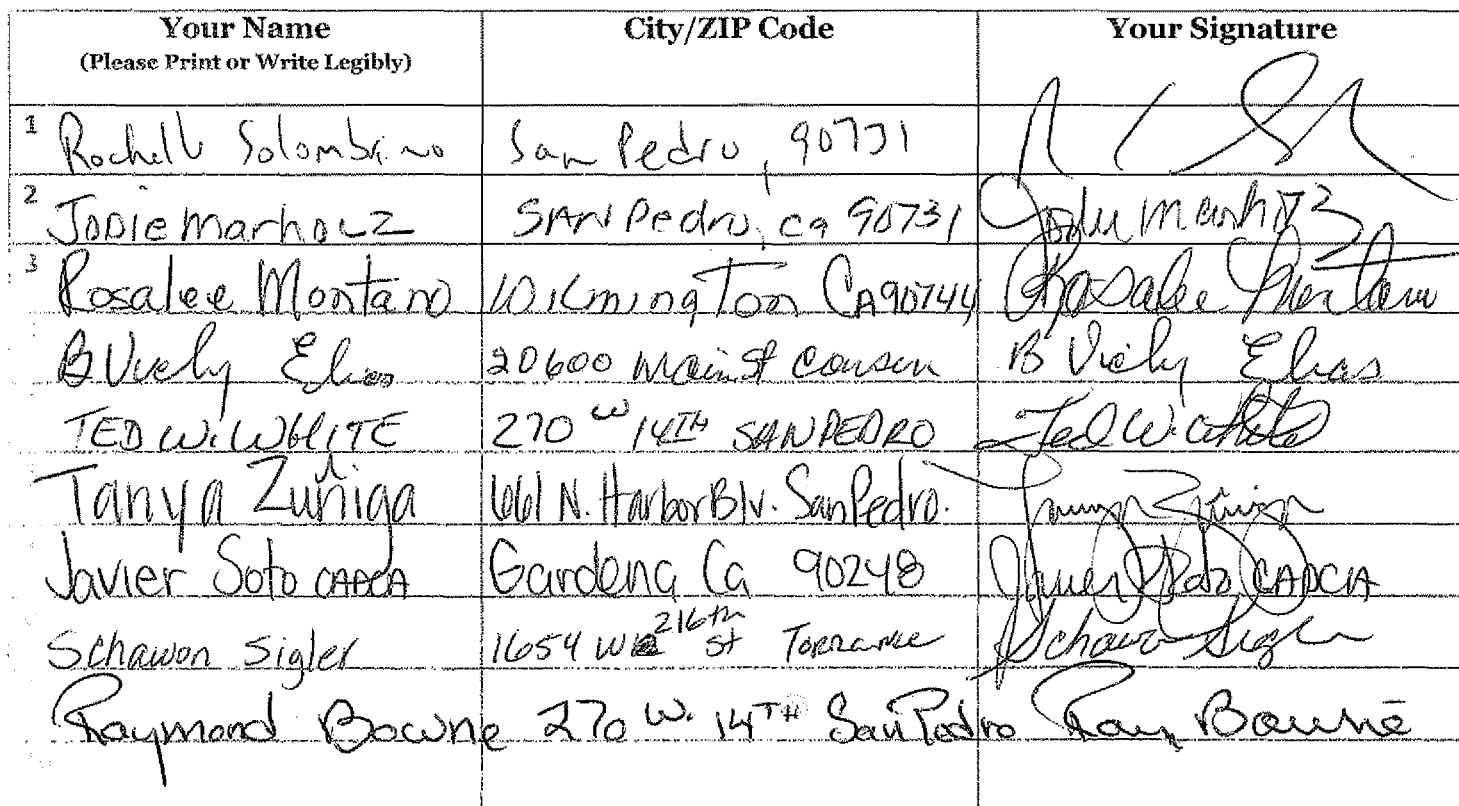 Your Name City/ZIP Code Your Signature
(Please Print or Write Legibly)
1 Rochelle Solombrino San Pedro, 90731
2 Jodie Marholz SAN Pedro, ca 90731 Jodie Marholz
3 Rosalee Montano Wilmington CA 90744 Rosalee Montano
B Vicky Elias 20600 Main St Carson B Vicky Elias
TED W. WHITE 270 W 14TH SAN PEDRO Ted W. White
Tanya Zuñiga 661 N. Harbor Blv. San Pedro. Tanya Zuñiga
Javier Soto CADCA Gardena Ca 90248 Javier Soto CADCA
Schawon Sigler 1654 W 216th St Torrance Schawon Sigler
Raymond Bowne 270 W. 14TH San Pedro Ray Bowne